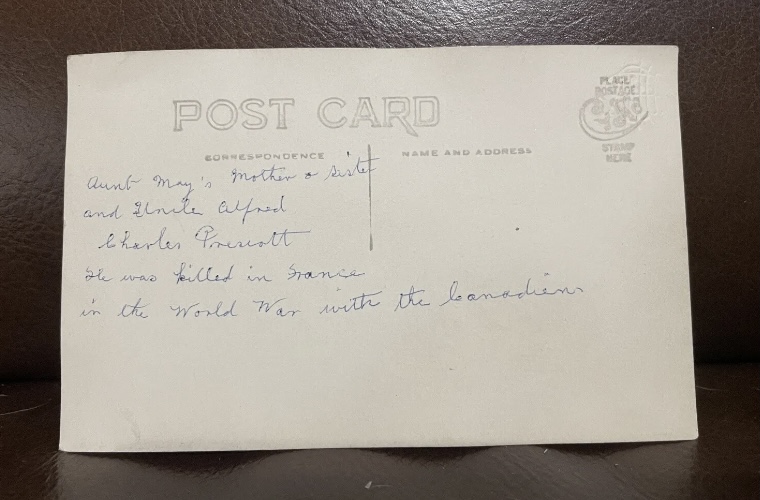 POST CARD
PLACE
POSTAGE
STAMP
HERE
CORRESPONDENCE
NAME AND ADDRESS
Aunt May's Mother & Sister
and Uncle Alfred
Charles Prescott
He was killed in France
in the World War with the Canadians